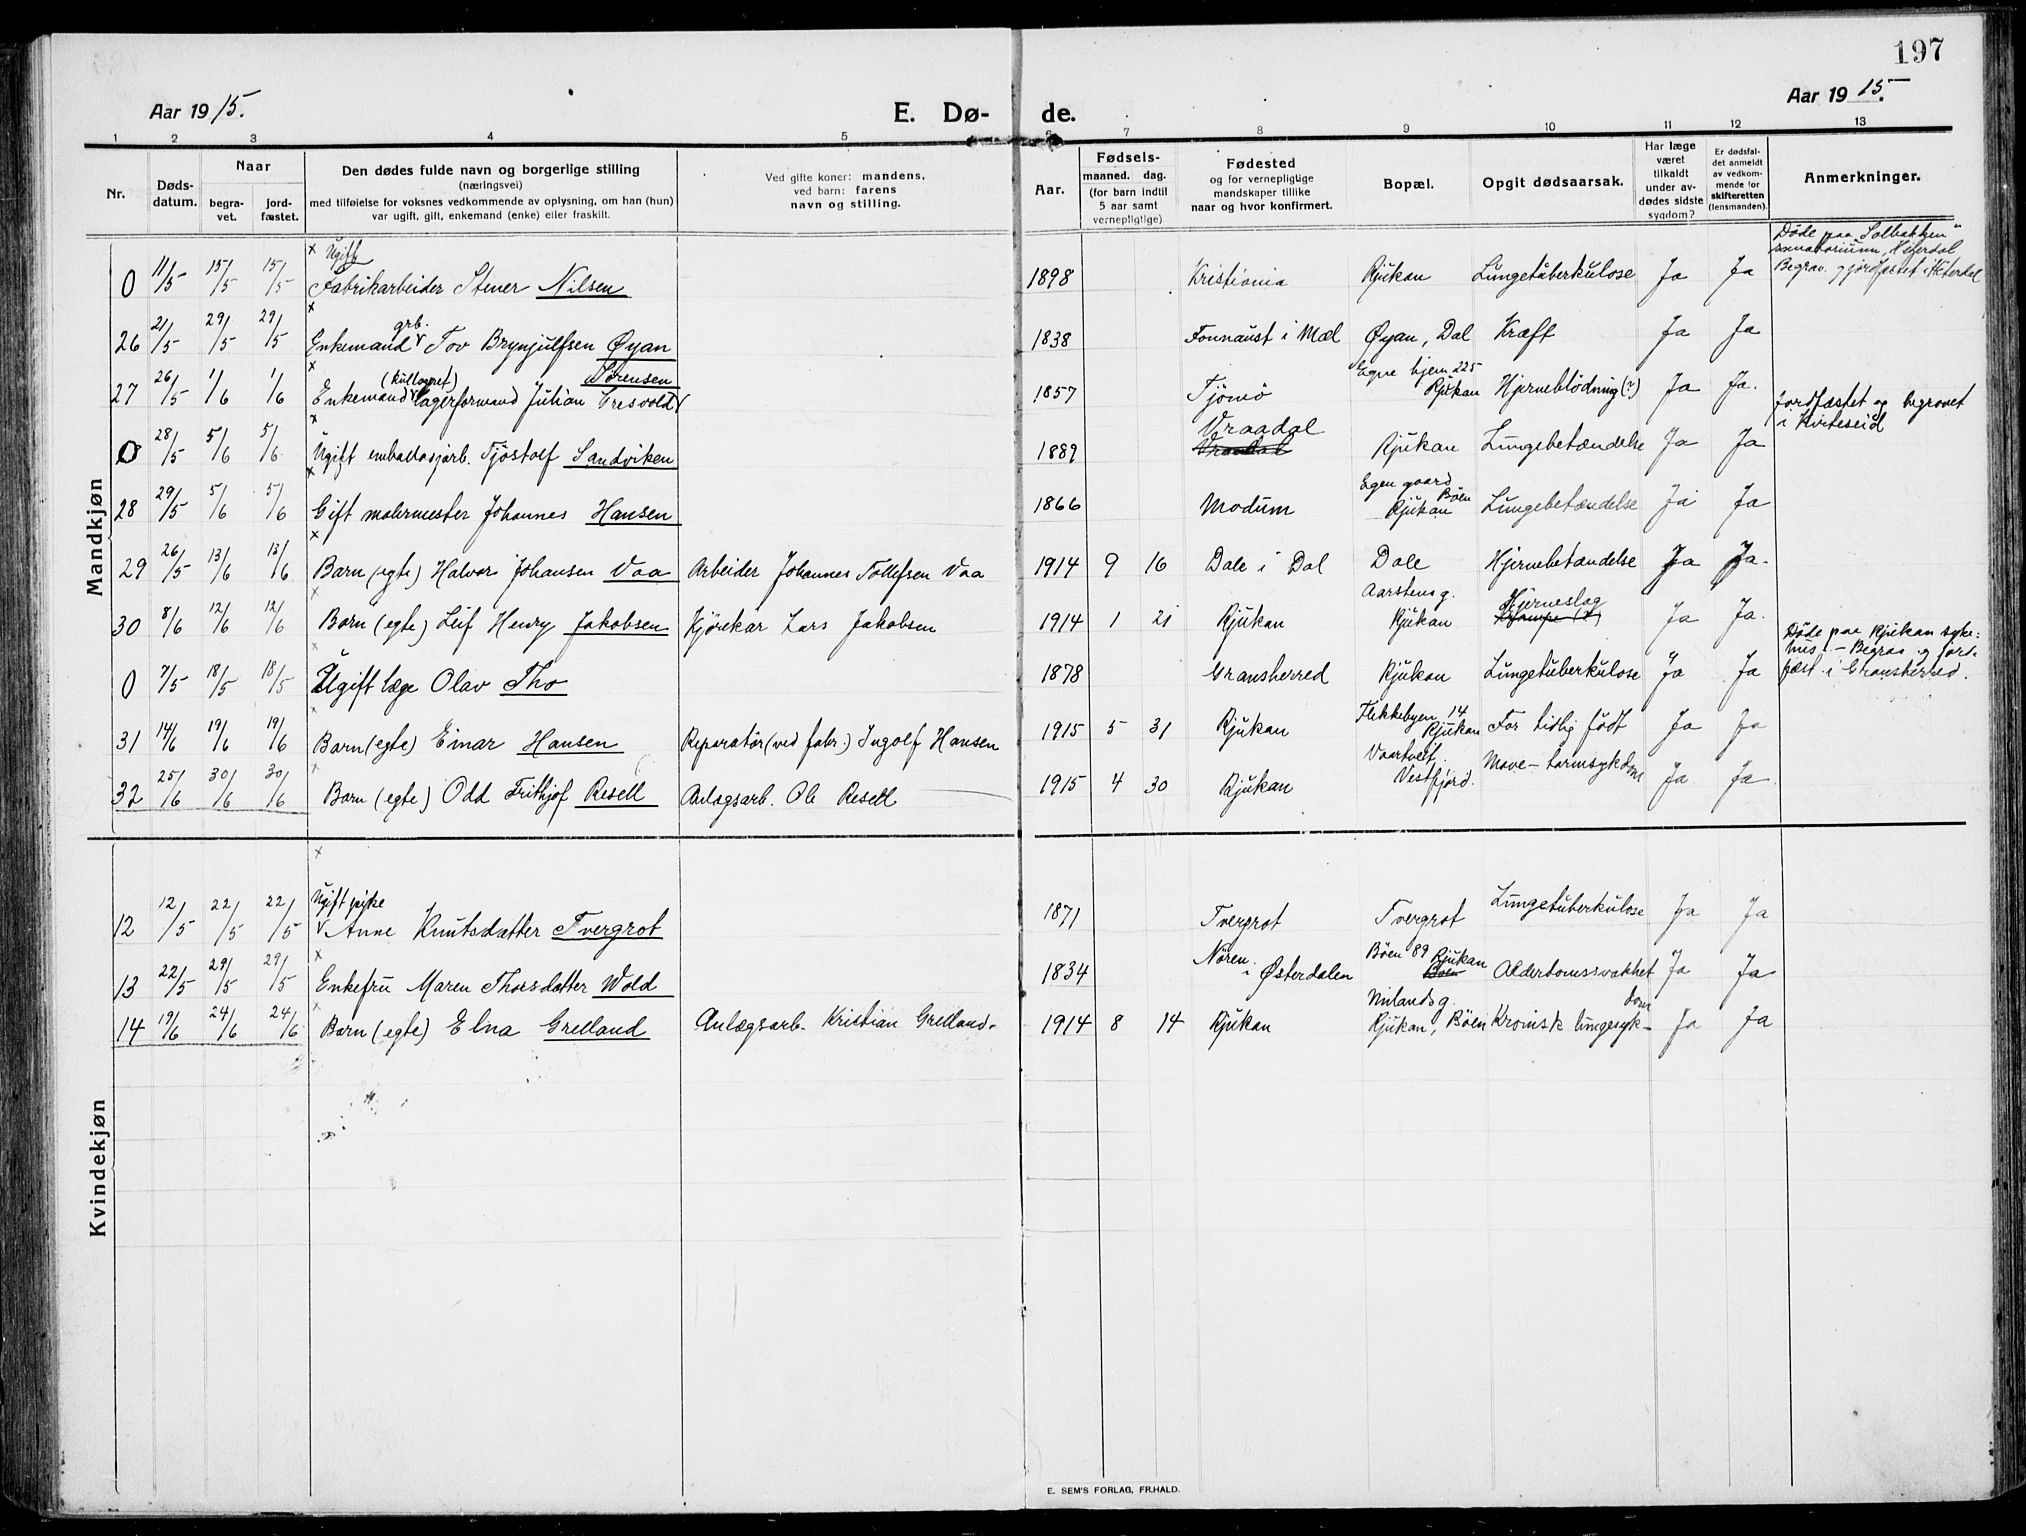 197
Aar 1915.
E. Dø-
de.
Aar 1915.
1 2 3 4 5 6 7 8 9 10 11 12 13
Nr.
Døds-
datum.
Naar
begra-
vet.
jord-
fæstet.
Den dødes fulde navn og borgerlige stilling
(næringsvei)
med tilføielse for voksnes vedkommende av oplysning, om han (hun)
var ugift, gift, enkemand (enke) eller fraskilt.
Ved gifte koner: mandens,
ved barn: farens
navn og stilling.
Aar.
Fødsels-
maaned. dag.
(for barn indtil
5 aar samt
vernepligtige)
Fødested
og for vernepligtige
mandskaper tillike
naar og hvor konfirmert.
Bopæl.
Opgit dødsaarsak.
Har læge
været
tilkaldt
under av-
dødes sidste
sygdom?
Er dødsfal-
det anmeldt
av vedkom-
mende for
skifteretten
(lensmanden).
Anmerkninger.
Mandkjøn
Ugift
0 11/5 15/5 15/5 Fabrikarbeider Stener Nilsen 1898 Kristiania Rjukan Lungetuberkulose Ja Ja
Døde paa "Solbakken"
sanatorium, Heterdal
Begrav. og jordfæstet i Heterdal
grb.
26 21/5 29/5 29/5 Enkemand Tov Brynjulfsen Øyan 1838 Fonnaust i Mæl Øyan, Dal Kræft Ja Ja
(kullageret) Sørensen
Egne hjem 225
27 26/5 1/6 1/6 Enkemand lagerformand Julian Gresvold 1857 Tjømø Rjukan Hjerneblödning (?) Ja Ja.
Vraadal
0 28/5 5/6 5/6 Ugift emballasjarb. Tjöstolf Sandviken 1889 Vraadal Rjukan Lungebetændelse Ja Ja
Jordfæstet og begravet
i Kviteseid
Egen gaard
Böen
28 29/5 5/6 5/6 Gift malermester Johannes Hansen 1866 Modum Rjukan Lungebetændelse Ja Ja
29 26/5 13/6 13/6 Barn (egte) Halvor Johansen Vaa Arbeider Johannes Tollefsen Vaa 1914 9 16 Dale i Dal Dale Hjernebetændelse Ja Ja.
Aarstensg. Hjerneslag
30 8/6 12/6 12/6 Barn (egte) Leif Henry Jakobsen Kjörekar Lars Jakobsen 1914 1 21 Rjukan Rjukan Krampe (?) Ja Ja.
0 7/5 18/5 18/5 Ugift læge Olav Tho 1878 Gransherred Rjukan Lungetuberkulose Ja Ja
Døde paa Rjukan syke-
hus. - Begrav. og jord-
fæst. i Gransherred.
Flekkebyen 14
31 14/6 19/6 19/6 Barn (egte) Einar Hansen Reparatör (ved fabr.) Ingolf Hansen 1915 5 31 Rjukan Rjukan For tidlig födt Ja Ja
Vaartveit.
32 25/6 30/6 30/6 Barn (egte) Odd Frithjof Resell Anlægsarb. Ole Resell 1915 4 30 Rjukan Vestfjord. Mave-tarmsykdom Ja Ja
Kvindekjøn
Ugift pike
12 12/5 22/5 22/5 Anne Knutsdatter Tvergrot 1871 Tvergrot Tvergrot Lungetuberkulose Ja Ja
Böen 89 Rjukan
13 22/5 29/5 29/5 Enkefru Maren Thorsdatter Wold 1834 i Østerdalen Böen Alderdomssvakhet Ja Ja
14 19/6 24/6 24/6 Barn (egte) Elna Grelland Anlægsarb. Kristian Grelland. 1914 8 14 Rjukan Rjukan, Böen Kronisk lungesyk-dom Ja Ja
E. SEM'S FORLAG, FR.HALD.